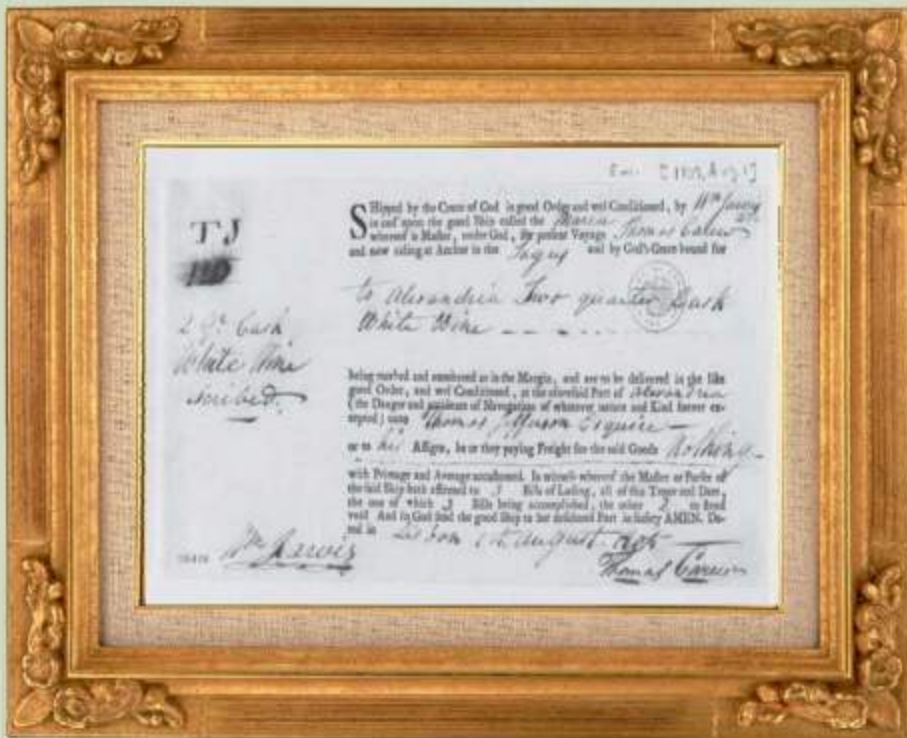 TJ
2 Qr. Cask
White Wine
SHipped by the Grace of God in good Order and wel Conditioned, by Wm Jarvis
in and upon the good Ship called the Maria
whereof is Master, under God, for present Voyage Thomas
and now riding at Anchor in the Tagus and by God's Grace bound for
to Alexandria Two quarter Cask
White Wine
being marked and numbered as in the Margin, and are to be delivered in the like
good Order, and wel Conditioned, at the aforesaid Port of Alexandria
(the Danger and accidents of Navigation of whatever nature and Kind soever ex-
cepted) unto Thomas Jefferson Esquire
or to his Assigns, he or they paying Freight for the said Goods Nothing
with Primage and Average accustomed. In witness whereof the Master or Purser of
the said Ship hath affirmed to 3 Bills of Lading, all of this Tenor and Date,
the one of which 3 Bills being accomplished, the other 2 to stand
void And so God send the good Ship to her desired Port in safety AMEN. Da-
ted in Lisbon August
Wm Jarvis
Thomas